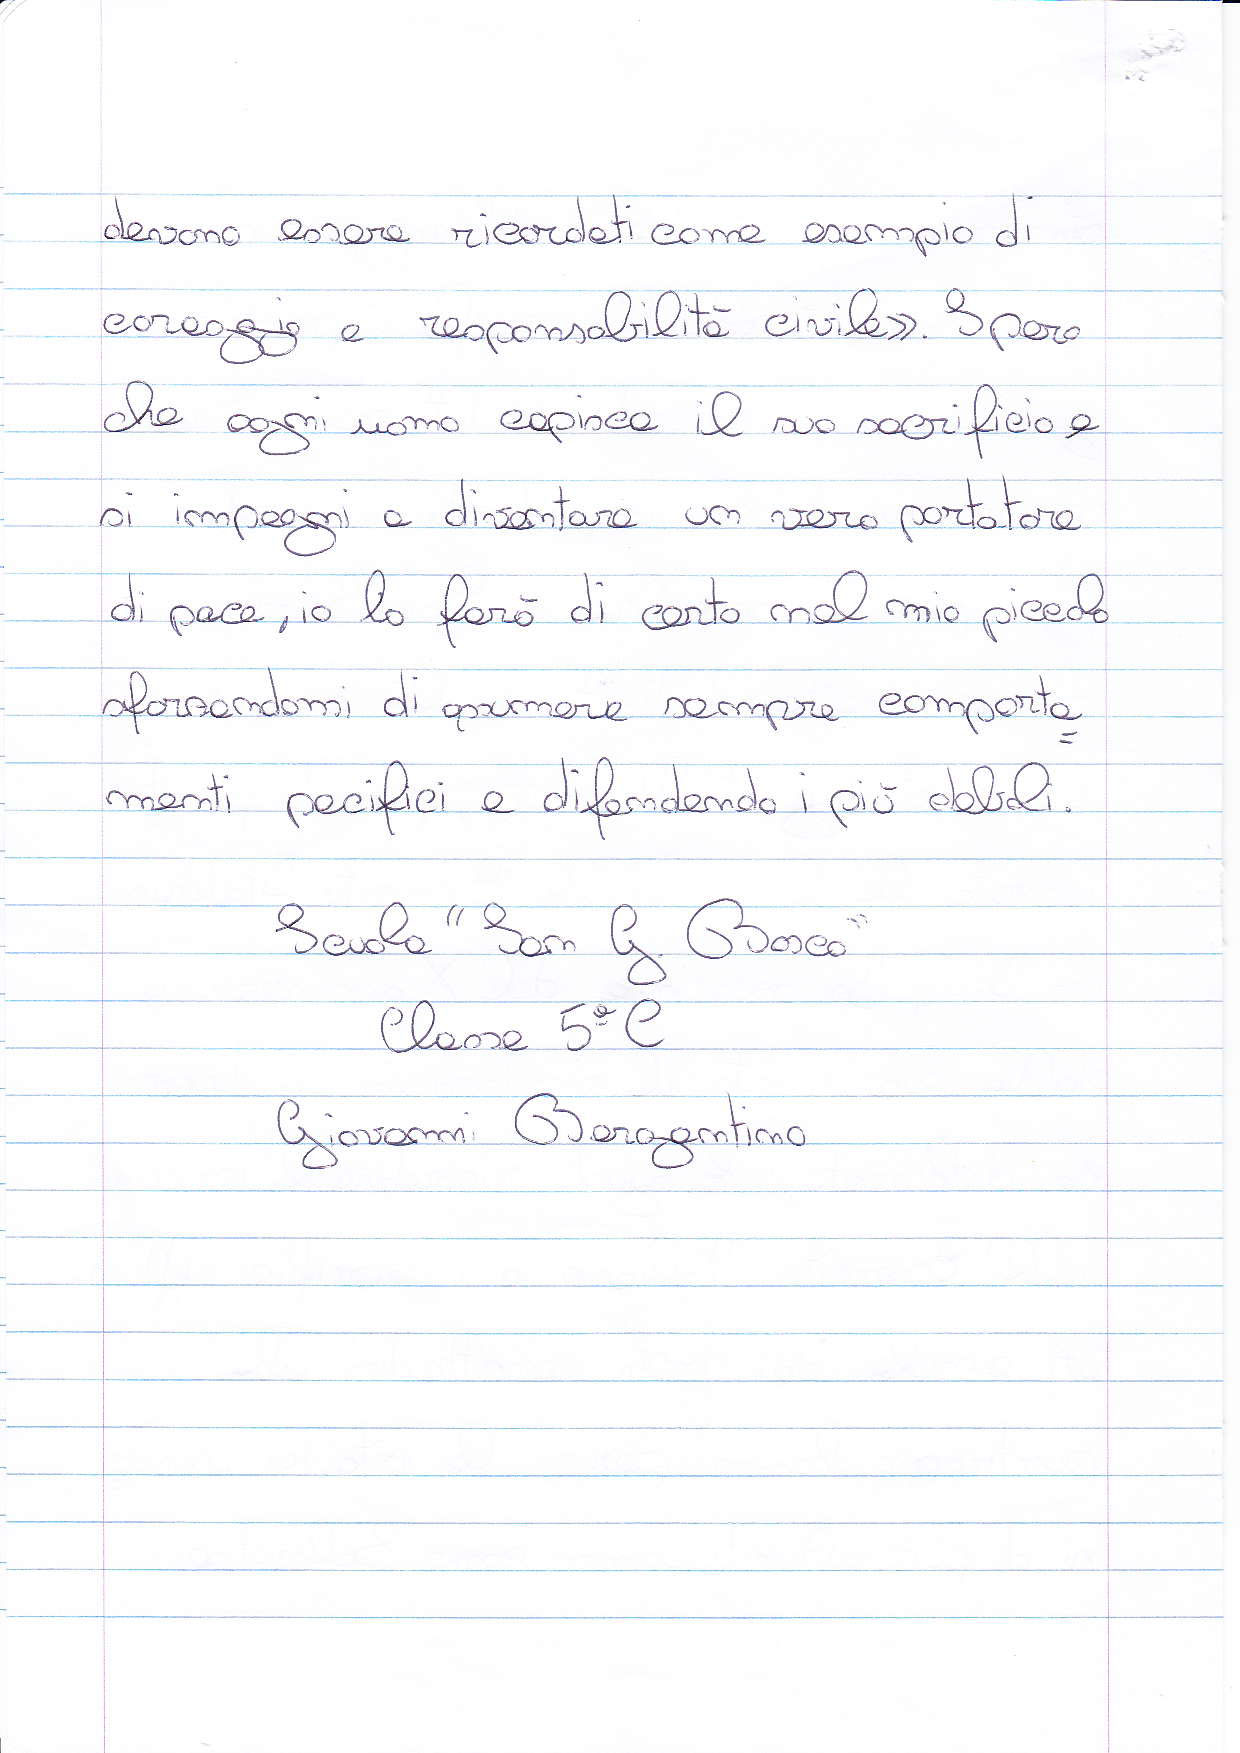 devono essere ricordati come esempio di
coraggio e responsabilità civile». Spero
che ogni uomo capisca il suo sacrificio e
si impegni a diventare un vero portatore
di pace, io lo farò di certo nel mio piccolo
sforzandomi di assumere sempre comporta=
menti pacifici e difendendo i più deboli.
Scuola "San G. Bosco"
Classe 5ª C
Giovanni Baragentino